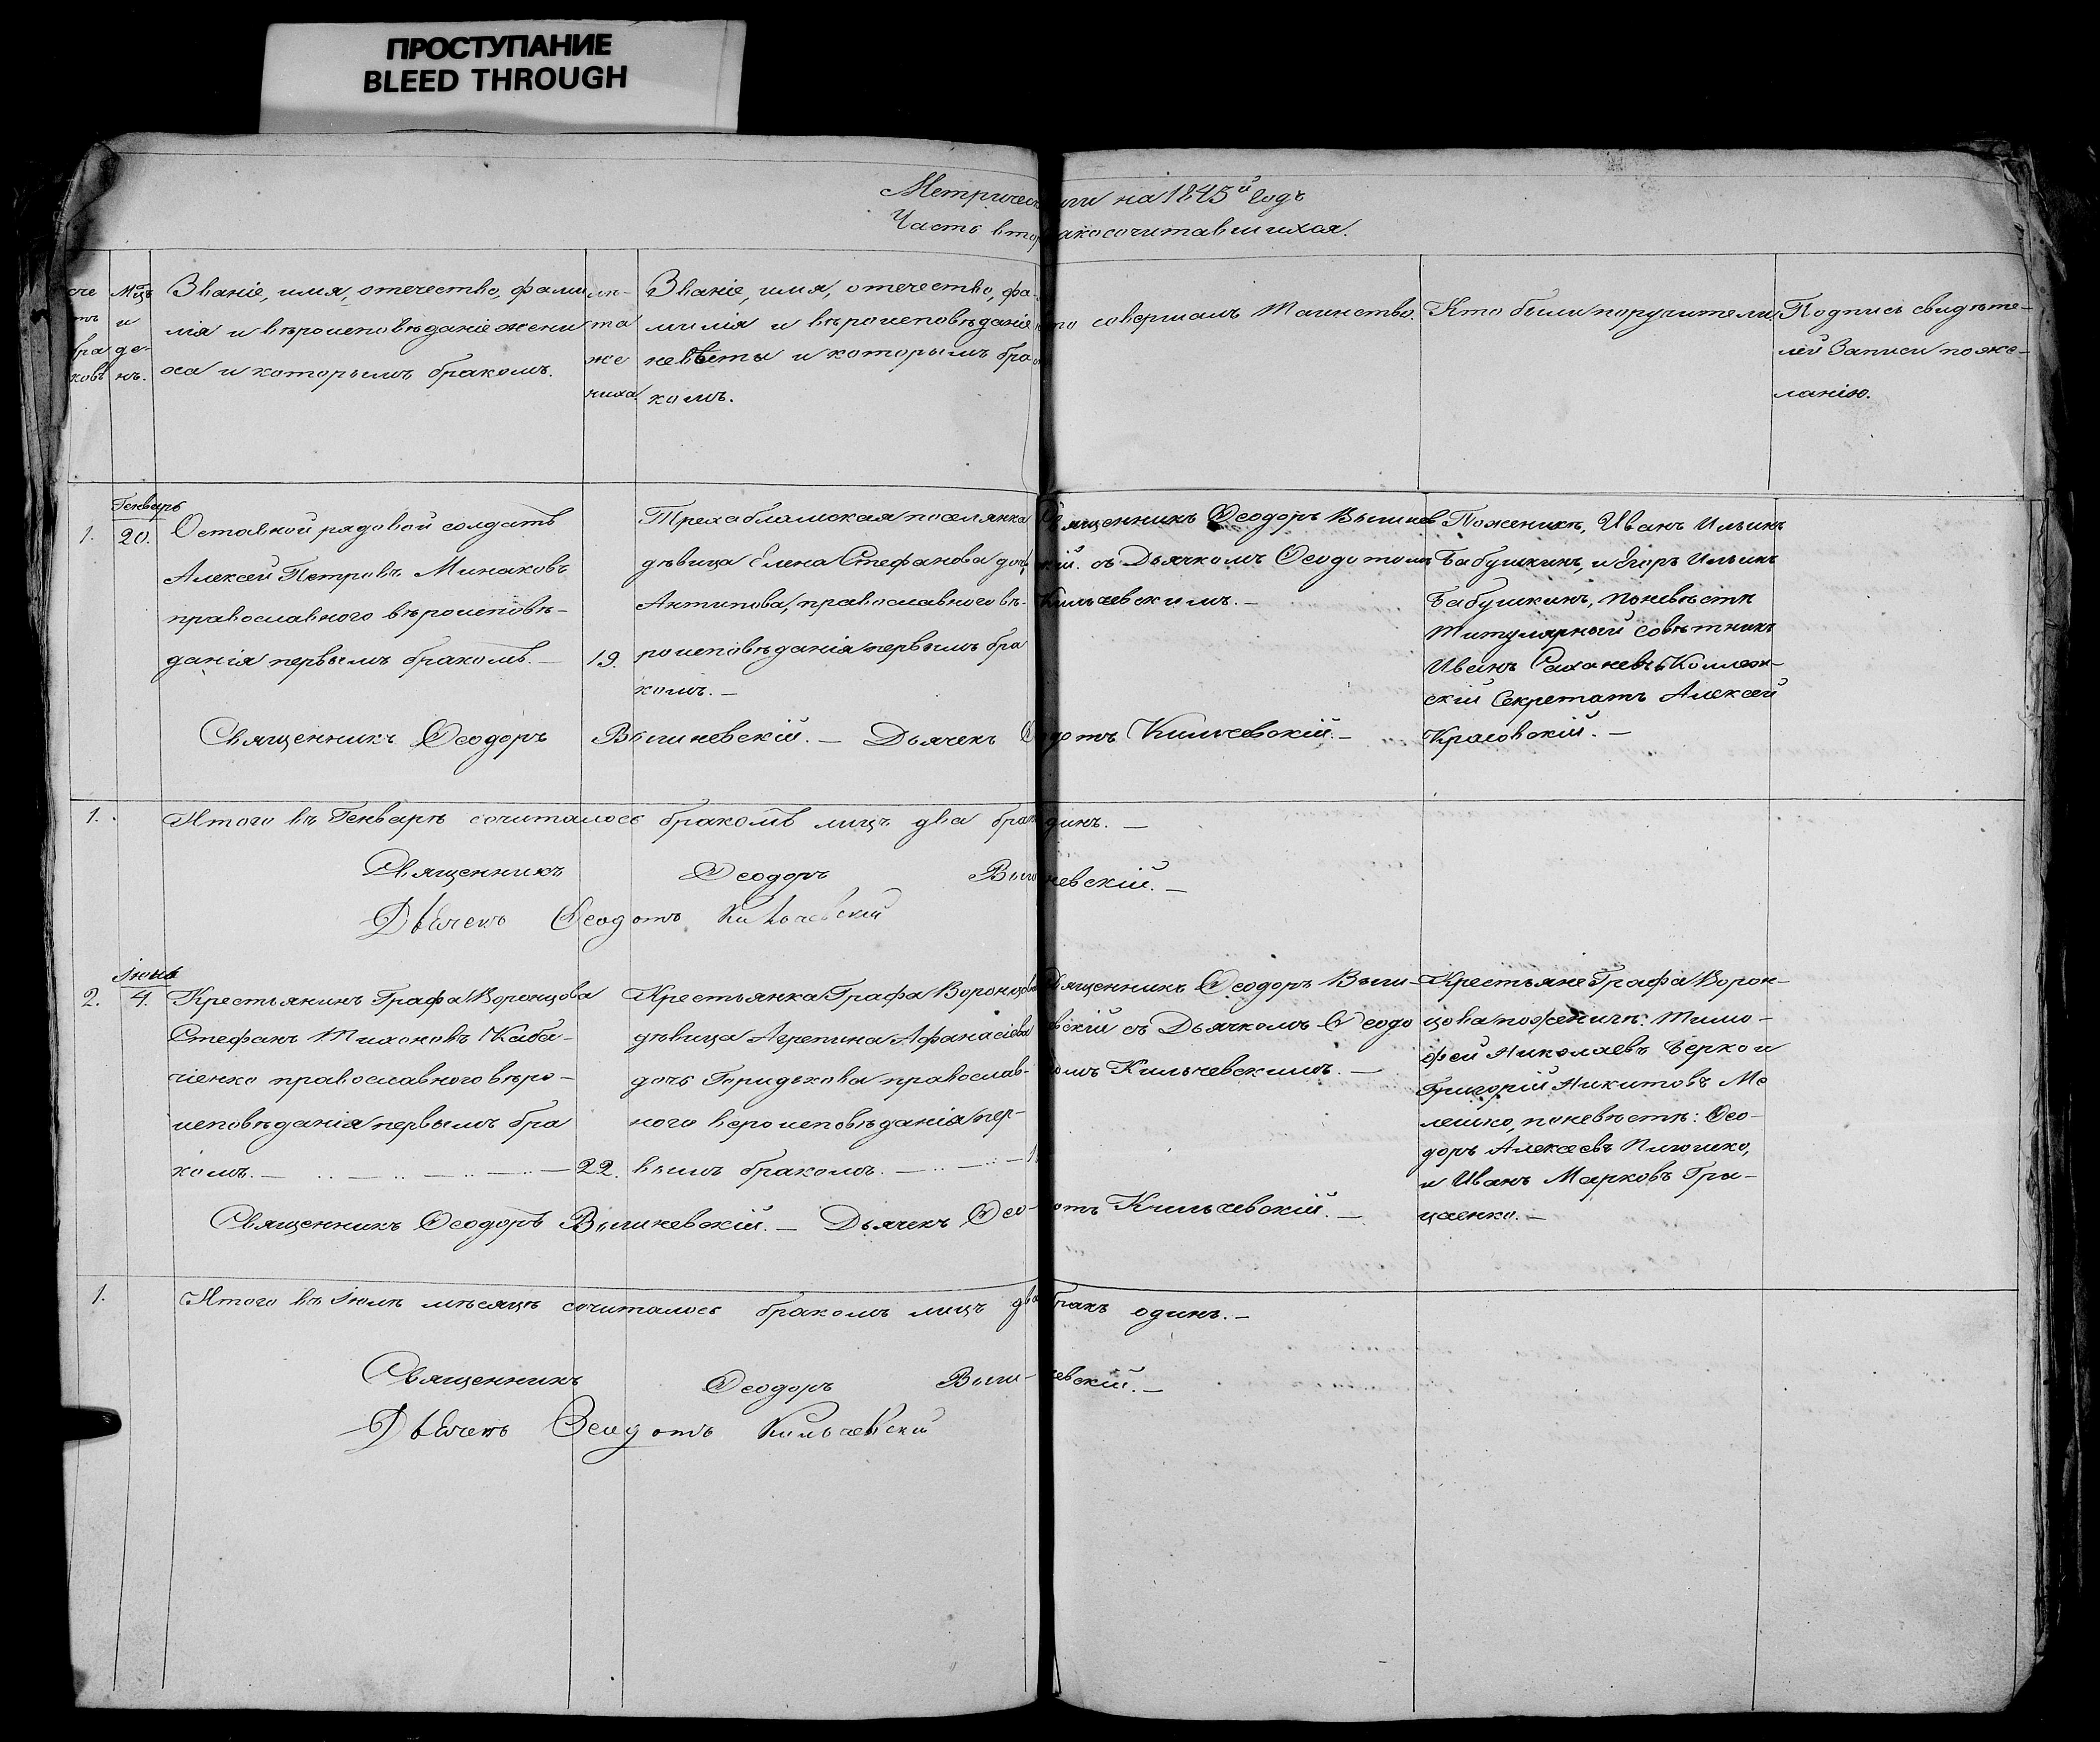 ПРОСТУПАНИЕ
BLEED THROUGH
Метричес иги на 1845й Годъ
Часть втор акосочитавшихся.
сче
тъ
бра
ковъ
Мцъ
и
де-
нь.
Званіе, имя, отечество, фами
лія и вѣроисповѣданіе жени
ха и которымъ бракомъ.
лѣ-
та
же
ниха.
Званіе, имя, отечество, фа-
милія и вѣроисповѣданіе
невѣсты и которымъ бра
комъ.
то совершалъ Таинство.
Кто были поручители.
Подпись свидѣте-
лей Записи поже-
ланію.
Генварь
1.
20.
Отставной рядовой солдатъ
Алексей Петровъ Минаковъ
православного вѣроисповѣ-
данія первымъ бракомъ. —
19.
Трехабламская поселянка
дѣвица Елена Стефанова дочь
Антипова, православного вѣ-
роисповѣданія первымъ бра
комъ. —
Священникъ Ѳеодоръ Вышнев
кій. съ Дьячкомъ Ѳеодотомъ
Кильчевскимъ. —
Поженихѣ, Иванъ Ильинъ
Бабушкинъ, и Егоръ Ильинъ
Бабушкинъ, Поневѣсти
Титулярный совѣтникъ
Иванъ Саханевъ, Коллеж-
скій Секретатъ Алексей
Красовскій. —
Священникъ Ѳеодоръ Вышневскій. — Дьячекъ Ѳ дотъ Кильчевскій. —
1.
Итого въ Генварѣ сочиталось бракомъ лицъ два брак динъ. —
Священникъ Ѳеодоръ Выш невскій. —
Дьячекъ Ѳеодотъ Кильчевскій
Іюль
2.
4.
Крестьянинъ Графа Воронцова
Стефанъ Тихоновъ Каба-
ченко православного вѣро-
исповѣданія первымъ бра
комъ. —
22.
Крестьянка Графа Воронцова
дѣвица Агрепина Афанасіева
дочь Геридькова православ-
ного вероисповѣданія пер-
вымъ бракомъ. —
1
Священникъ Ѳеодоръ Выш-
вскій съ Дьячкомъ Ѳеодо
омъ Кильчевскимъ. —
Крестьяне Графа Ворон-
цова поженихѣ: Тимо-
фей Николаевъ Берко и
Григорій Никитовъ Ме
лешко, поневѣстѣ: Ѳео-
доръ Алексеевъ Плюшко,
и Иванъ Марковъ Гри-
щенко. —
Священникъ Ѳеодоръ Вышневскій. — Дьячекъ Ѳео- отъ Кильчевскій. —
1.
Итого въ Іюлѣ мѣсяцѣ сочиталось бракомъ лицъ два бракъ одинъ. —
Священникъ Ѳеодоръ Выш- невскій. —
Дьячекъ Ѳеодотъ Кильчевскій